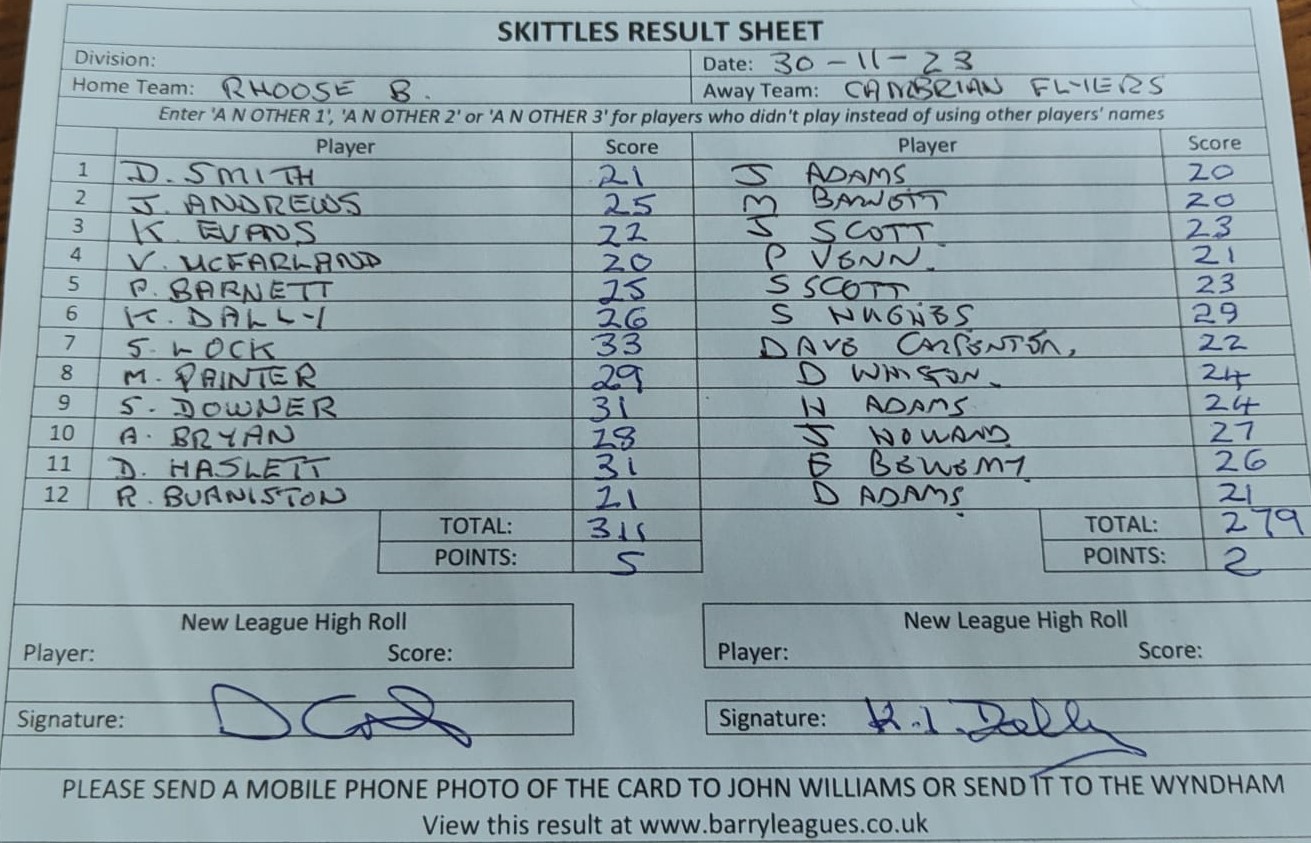 SKITTLES RESULT SHEET
Division: Date: 30-11-23
Home Team: RHOOSE B. Away Team: CAMBRIAN FLYERS
Enter 'A N OTHER 1', 'A N OTHER 2' or 'A N OTHER 3' for players who didn't play instead of using other players' names
Player Score Player Score
1 D. SMITH 21 J ADAMS 20
2 J. ANDREWS 25 M BARNETT 20
3 K. EVANS 22 J SCOTT 23
4 V. MCFARLAND 20 P VENN. 21
5 P. BARNETT 25 S SCOTT 23
6 K. DALLY 26 S HUGHES 29
7 S. LOCK 33 DAVE CARPENTER, 22
8 M. PAINTER 29 D WINSTON. 24
9 S. DOWNER 31 H ADAMS 24
10 A. BRYAN 28 J HOLLAND 27
11 D. HASLETT 31 E 26
12 R. BURNISTON 21 D ADAMS 21
TOTAL: 311 TOTAL: 279
POINTS: 5 POINTS: 2
New League High Roll New League High Roll
Player: Score: Player: Score:
Signature: Signature: K.I. Dally
PLEASE SEND A MOBILE PHONE PHOTO OF THE CARD TO JOHN WILLIAMS OR SEND IT TO THE WYNDHAM
View this result at www.barryleagues.co.uk